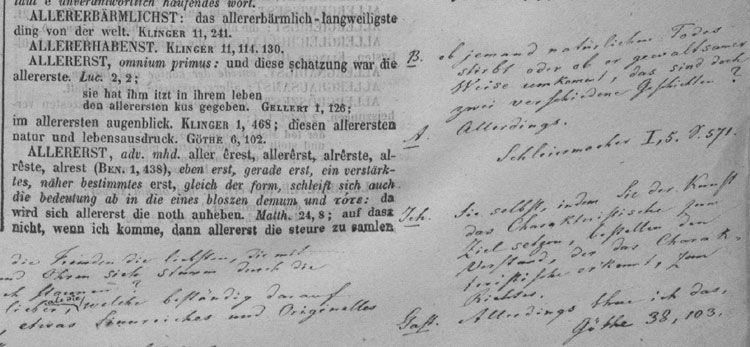 laut e unverantwortlich häufendes wort.
ALLERERBÄRMLICHST: das allererbärmlich-langweiligste
ding von der welt. KLINGER 11, 241.
ALLERERHABENST. KLINGER 11, 114. 130.
ALLERERST, omnium primus: und diese schatzung war die
allererste. Luc. 2, 2;
sie hat ihm itzt in ihrem leben
den allerersten kus gegeben. GELLERT 1, 126;
im allerersten augenblick. KLINGER 1, 468; diesen allerersten
natur und lebensausdruck. GÖTHE 6, 102.
ALLERERST, adv. mhd. aller êrest, allerêrst, alrêrste, al-
rêste, alrest (BEN. 1, 438), eben erst, gerade erst, ein verstärk-
tes, näher bestimmtes erst, gleich der form, schleift sich auch
die bedeutung ab in die eines bloszen demum und τότε: da
wird sich allererst die noth anheben. Matth. 24, 8; auf dasz
nicht, wenn ich komme, dann allererst die steure zu samlen
die Fremden die liebsten, die mit
und Ohren sich stumm durch die
lieber, als die, welche beständig darauf
, etwas Sinnreiches und Originelles
B. ob jemand natürlichen Todes
stirbt oder ob er gewaltsamer
Weise umkommt, das sind doch
zwei verschiedene Geschichten?
A. Allerdings.
Schleiermacher I, 5. S. 571.
Ich. Sie selbst, indem Sie der Kunst
das Charakteristische zum
Ziel setzen, bestellen den
Verstand, der das Charak-
teristische erkennt, zum
Richter.
Gast. Allerdings thue ich das,
Göthe 38, 103.